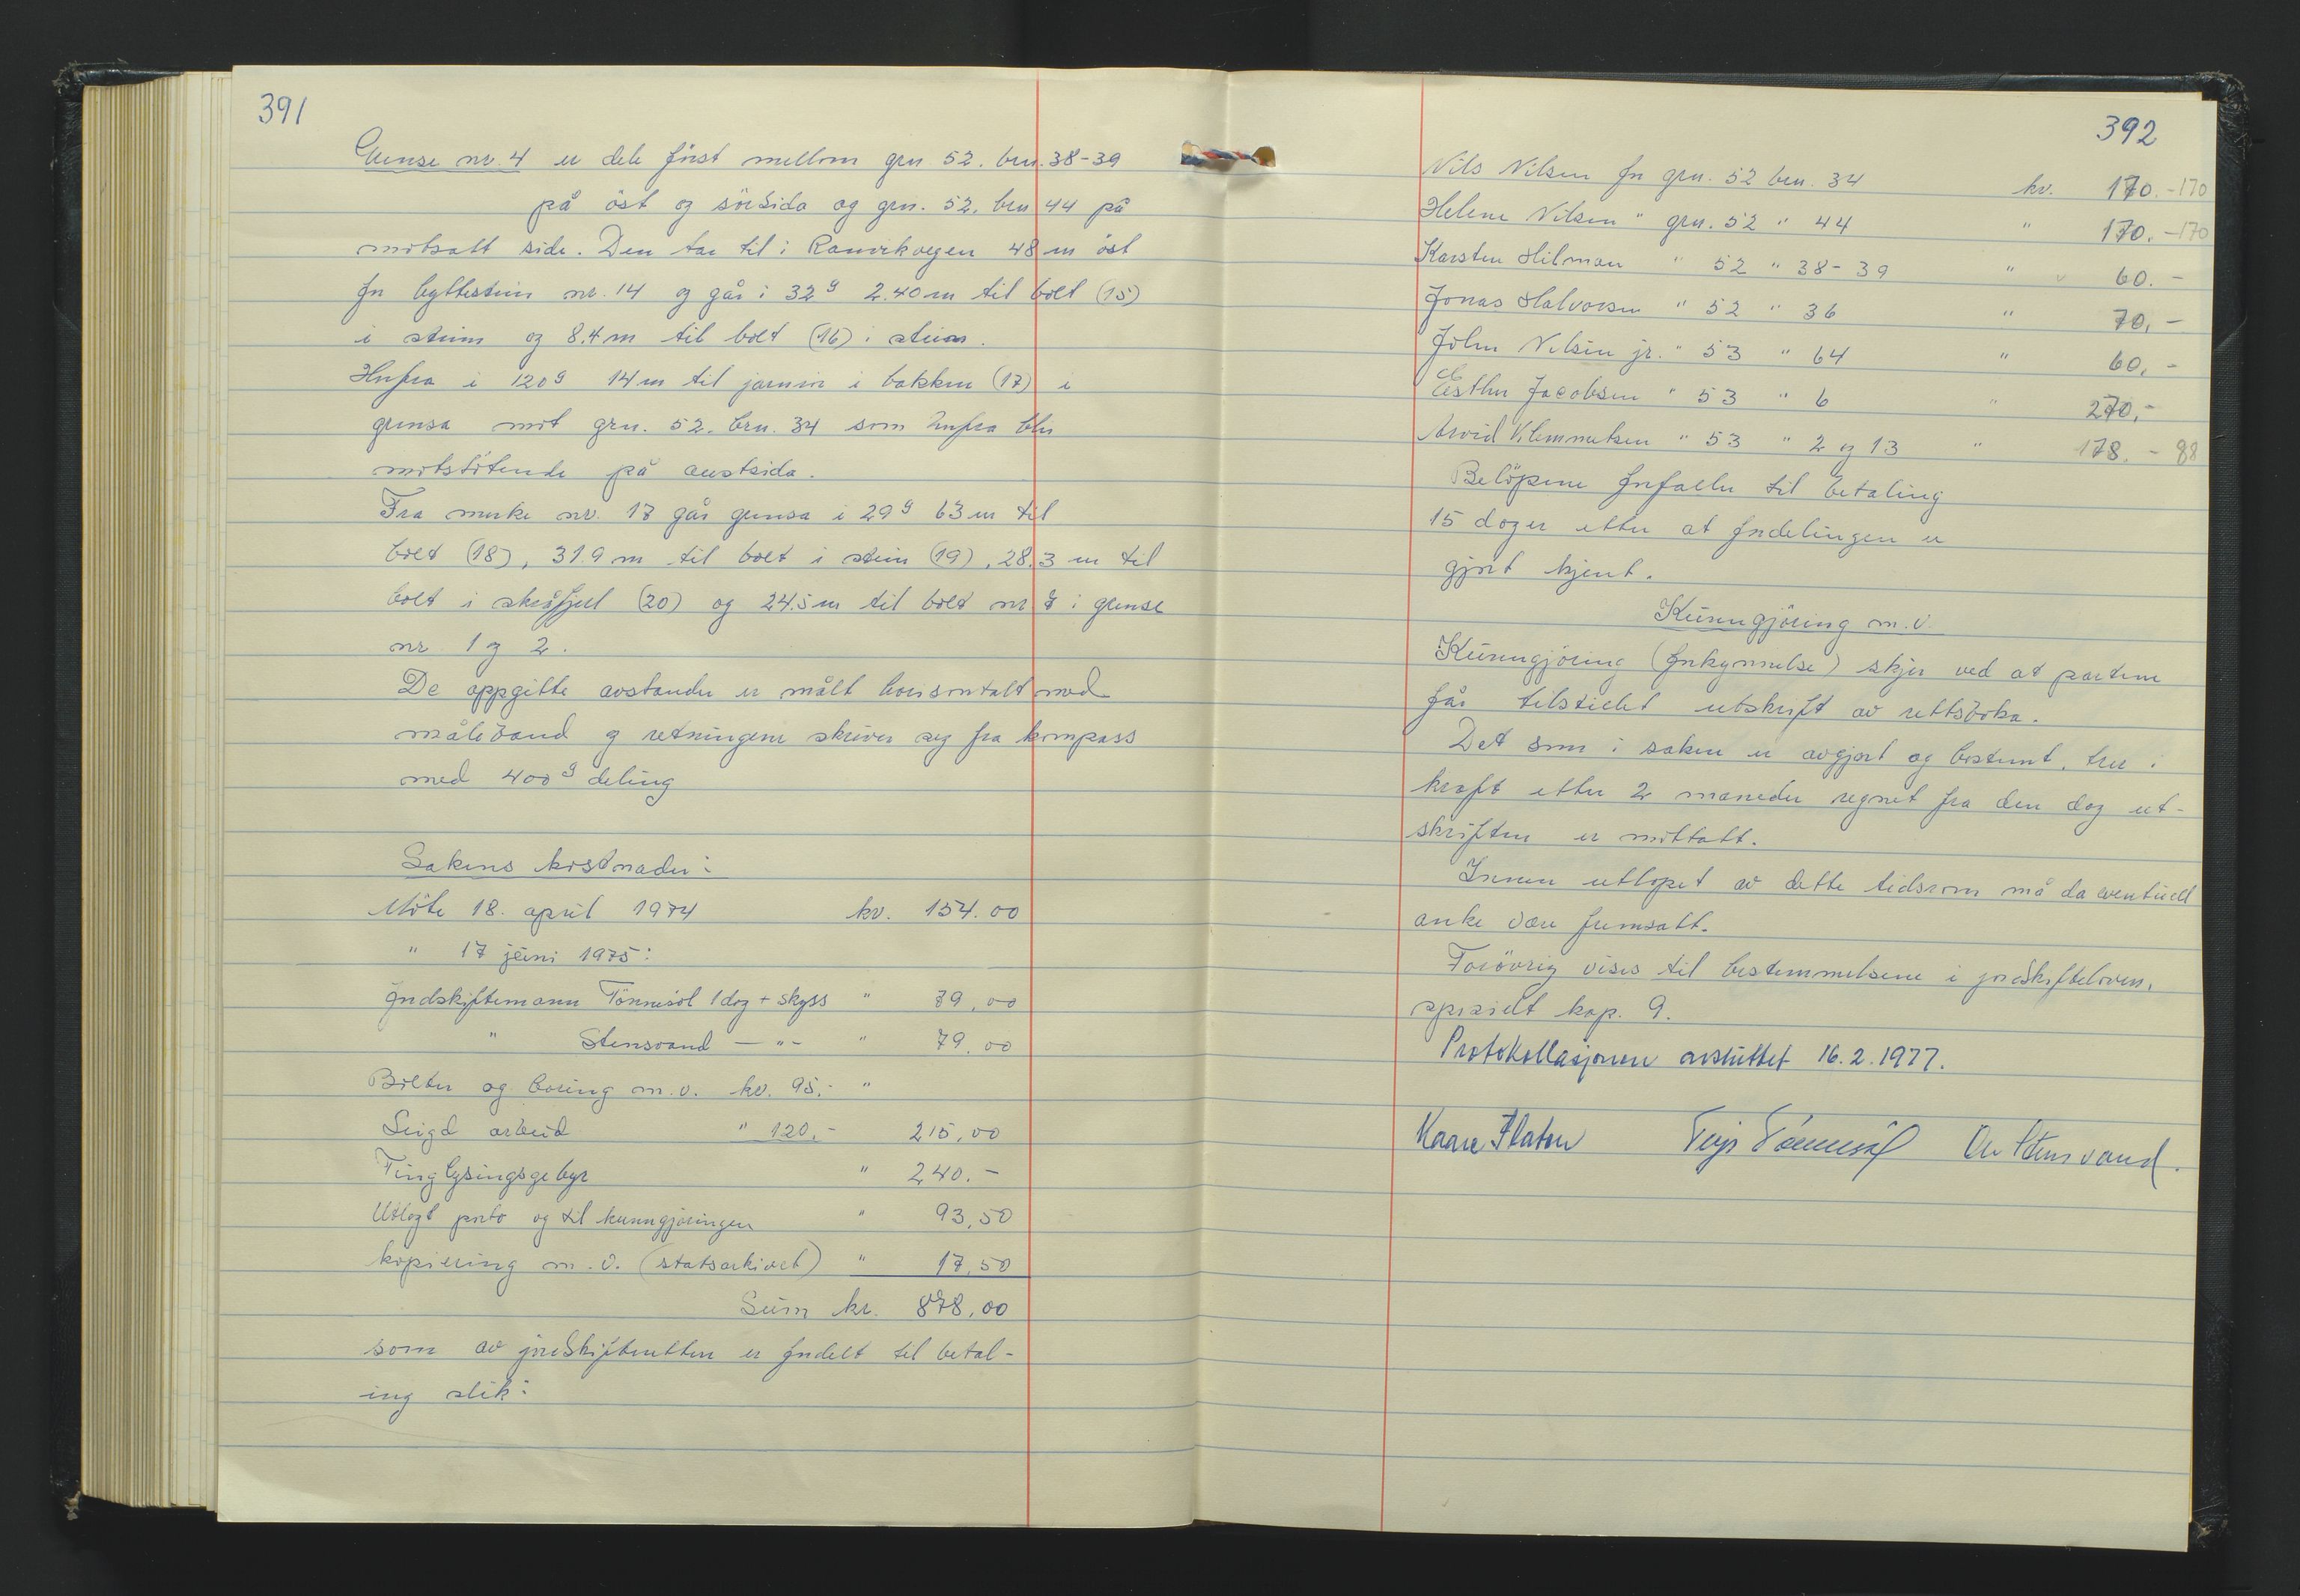 391
Grense nr. 4 er dele först mellom grn 52. brn. 38-39
på öst og sörsida og grn. 52. brn 44 på
motsatt side. Den tar til i Ranvikvegen 48 m öst
for byttestein nr. 14 og går i 32g 2.40 m til bolt (15)
i stein og 8.4 m til bolt (16) i stein.
Herfra i 120g 14 m til jarnrör i bakken (17) i
grensa mot grn. 52. brn. 34 som herfra blir
motstötende på austsida.
Fra merke nr. 17 går grensa i 29g 63 m til
bolt (18), 31.9 m til bolt i stein (19), 28.3 m til
bolt i skråfjell (20) og 24.5 m til bolt nr 7 i grense
nr. 1 og 2.
De oppgitte avstander er målt horisontalt med
målebånd og retningene skriver seg fra kompass
med 400g deling
Sakens kostnader:
Möte 18. april 1974 kr. 154.00
" 17 juni 1975:
Jordskiftemann Tönnesöl 1 dag + skyss " 79,00
" Stensvand — " - " 79.00
Bolter og boring m.v. kr. 95.- "
Leigd arbeid " 120.- 215,00
Tinglysingsgebyr " 240.-
Utlagt porto og til kunngjöringen " 93,50
kopiering m.v. (statsarkivet) " 17,50
Sum kr. 878,00
som av jordskifteretten er fordelt til betal-
ing slik:
392
Nils Nilsen for grn. 52 brn. 34 kr. 170.- 170
Helene Nilsen " grn. 52 " 44 " 170.- 170
Karsten Hilman " 52 " 38-39 " 60.-
Jonas Halvorsen " 52 " 36 " 70,-
John Nilsen jr. " 53 " 64 " 60,-
Esther Jacobsen " 53 " 6 " 270,-
Arvid Klemmetsen " 53 " 2 og 13 " 178.- 88
Belöpene forfaller til betaling
15 dager etter at fordelingen er
gjort kjent.
Kunngjöring m.v.
Kunngjöring (forkynnelse) skjer ved at partene
får tilstillet utskrift av rettsboka.
Det som i saken er avgjort og bestemt, trer i
kraft etter 2 maneder regnet fra den dag ut-
skriften er mottatt.
Innen utlöpet av dette tidsrom må da eventuell
anke være fremsatt.
Forövrig vises til bestemmelsene i jordskifteloven,
spesielt kap. 9.
Protokollasjonen avsluttet 16.2.1977.
Kaare Flaten Terje Tönnesöl Stensvand.